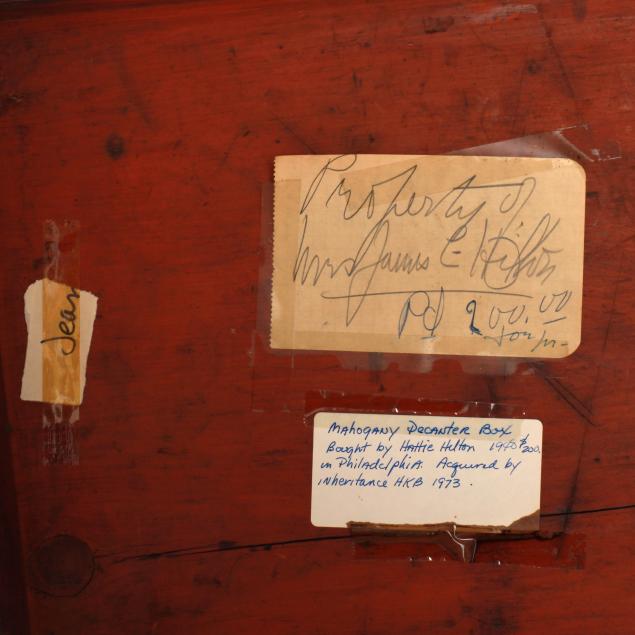 Property of
Mrs James E Hilton
Pd 200.00
Jean
Mahogany Decanter Box
Bought by Hattie Hilton 1940 $200.
in Philadelphia. Acquired by
inheritance HKB 1973.